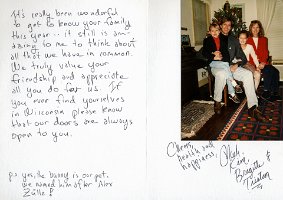 It's really been wonderful
to get to know your family
this year... it still is am-
azing to me to think about
all that we have in common.
We truly value your
friendship and appreciate
all you do for us. If
you ever find yourselves
in Wisconsin please know
that our doors are always
open to you.
p.s. yes, the bunny is our pet.
we named him after Alex
Zülle!
Cheers,
health and
happiness,
Brigitte &